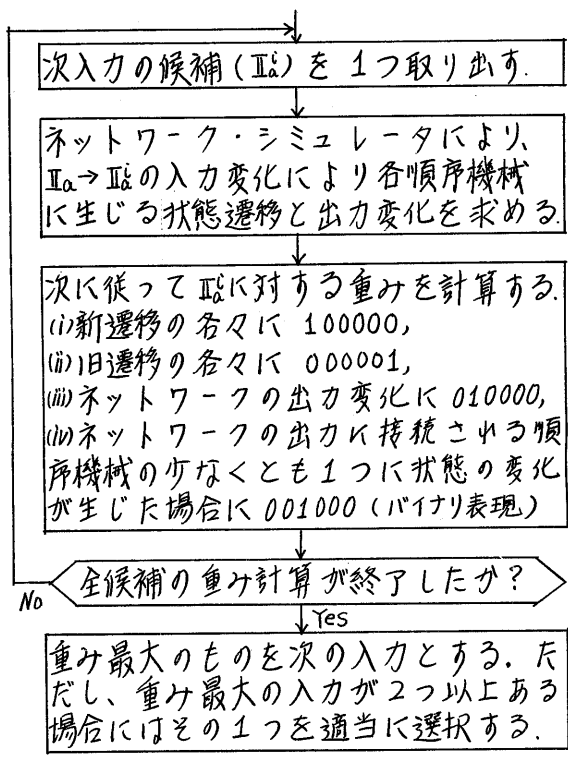 次入力の候補(Ⅱaⁱ)を1つ取り出す.
ネットワーク・シミュレータにより、
Ⅱa→Ⅱaⁱの入力変化により各順序機械
に生じる状態遷移と出力変化を求める.
次に従ってⅡaⁱに対する重みを計算する.
(i)新遷移の各々に 100000,
(ii)旧遷移の各々に 000001,
(iii)ネットワークの出力変化に 010000,
(iv)ネットワークの出力に接続される順
序機械の少なくとも1つに状態の変化
が生じた場合に 001000 (バイナリ表現)
全候補の重み計算が終了したか?
No
Yes
重み最大のものを次の入力とする. た
だし、重み最大の入力が2つ以上ある
場合にはその1つを適当に選択する.